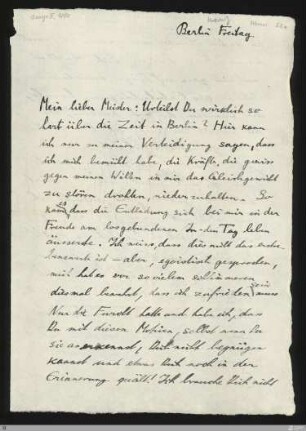 Berlin Freitag.
Mein lieber Meider: Urteilst Du wirklich so
hart über die Zeit in Berlin? Hier kann
ich nur zu meiner Verteidigung sagen, dass
ich mich bemüht habe, die Kräfte, die gewiss
gegen meinen Willen in mir das Gleichgewicht
zu stören drohten, niederzuhalten. So
kam es, dass die Entladung sich bei mir in der
Freude am losgebundenen In-den-Tag leben
äusserte. Ich weiss, dass dies nicht das
ist - aber, egoistisch gesprochen,
mich hat es vor so vielem schlimmeren
diesmal bewahrt, dass ich zufrieden sein muss
Nur die Furcht hatte und habe ich, dass
Du mit diesen Motiven, selbst wenn Du
sie anerkennst, Dich nicht begnügen
kannst und etwas Dich noch in der
Erinnerung quält! Ich brauche Dich nicht